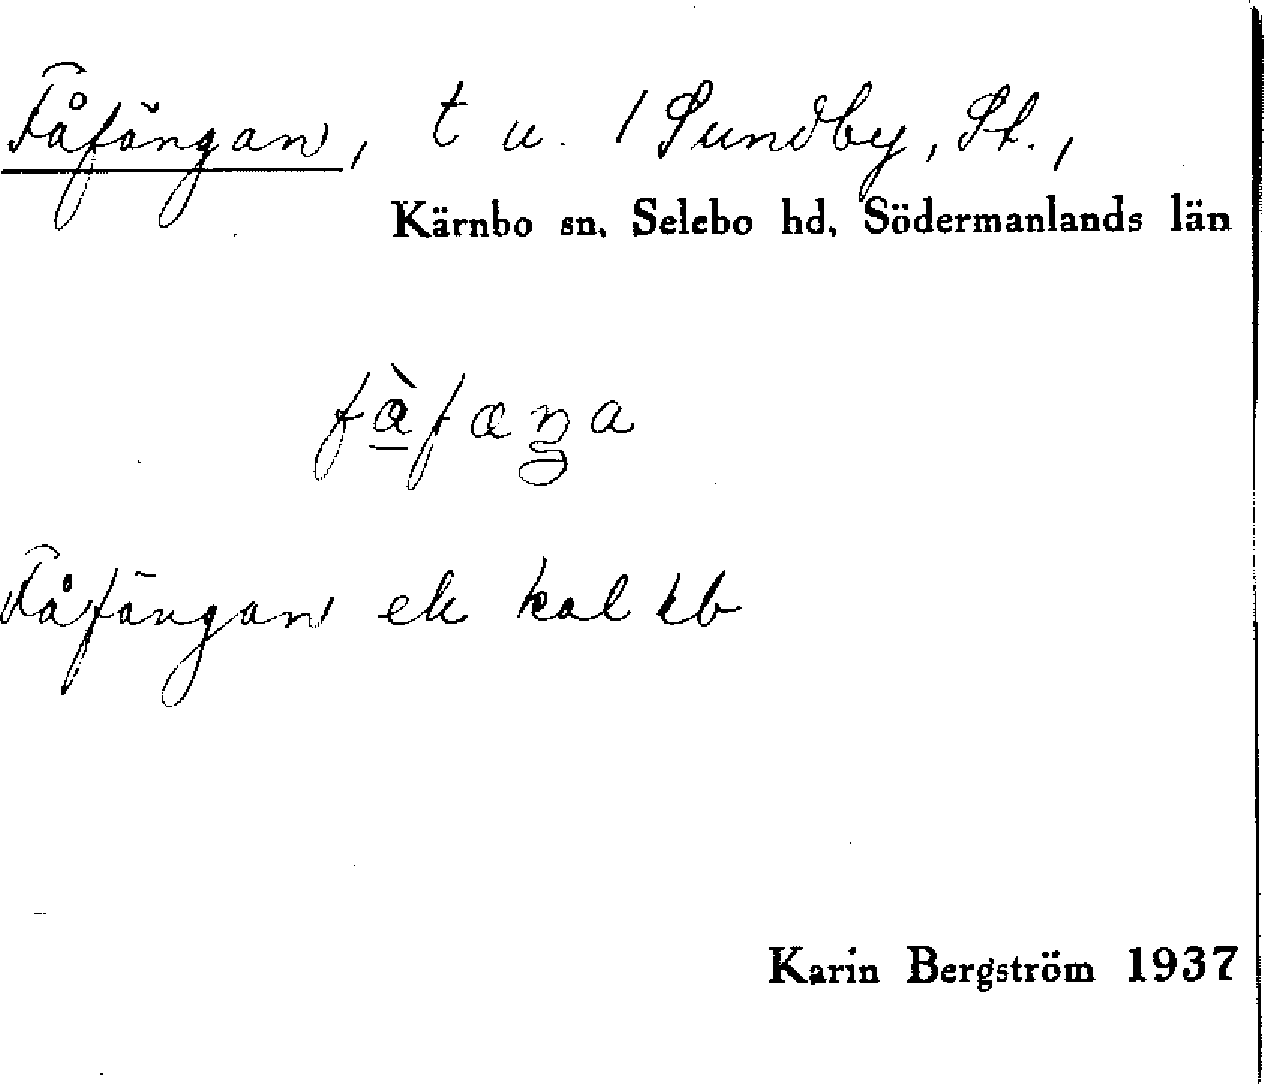 Fåfängan, t u. / Sundby, St.,
Kärnbo sn. Selebo hd. Södermanlands län
fàfæŋa
Fåfängan ek kal kb
Karin Bergström 1937